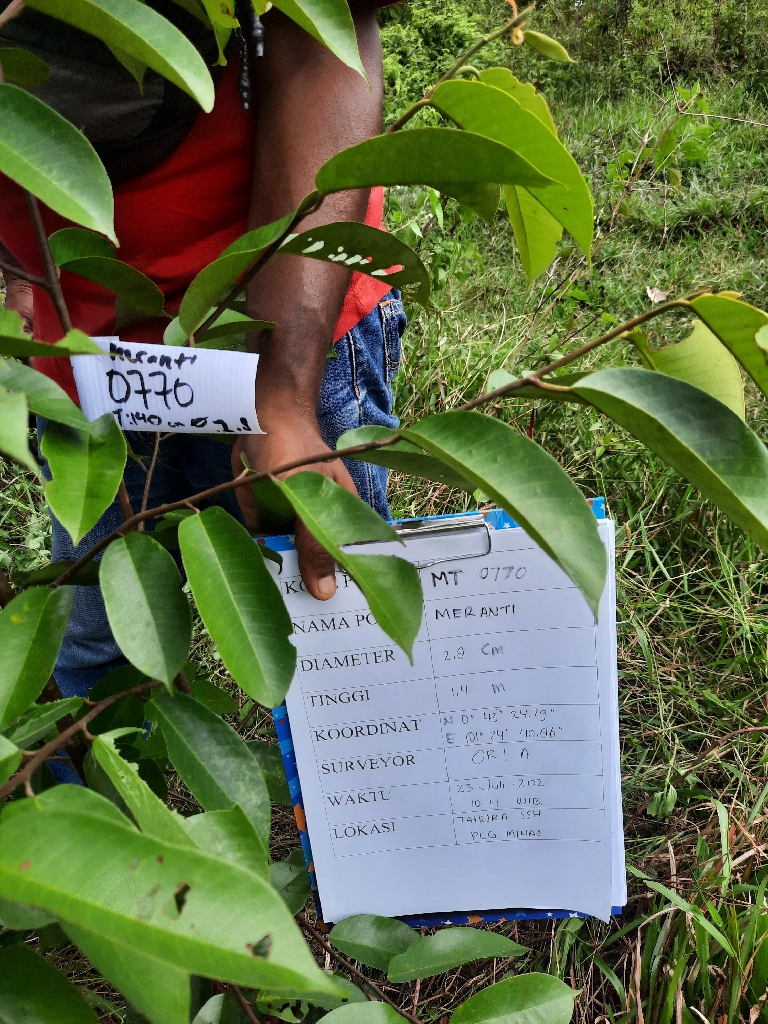 Meranti
0770
T:140 cm Ø 2.8
MT 0770
NAMA PO MERANTI
DIAMETER 2,8 Cm
TINGGI 1,4 M
KOORDINAT N 0° 43' 24.19"
E 101° 24'
SURVEYOR
WAKTU 23 Juli 202
WIB
LOKASI TAHURA SSH
PLG MINAS